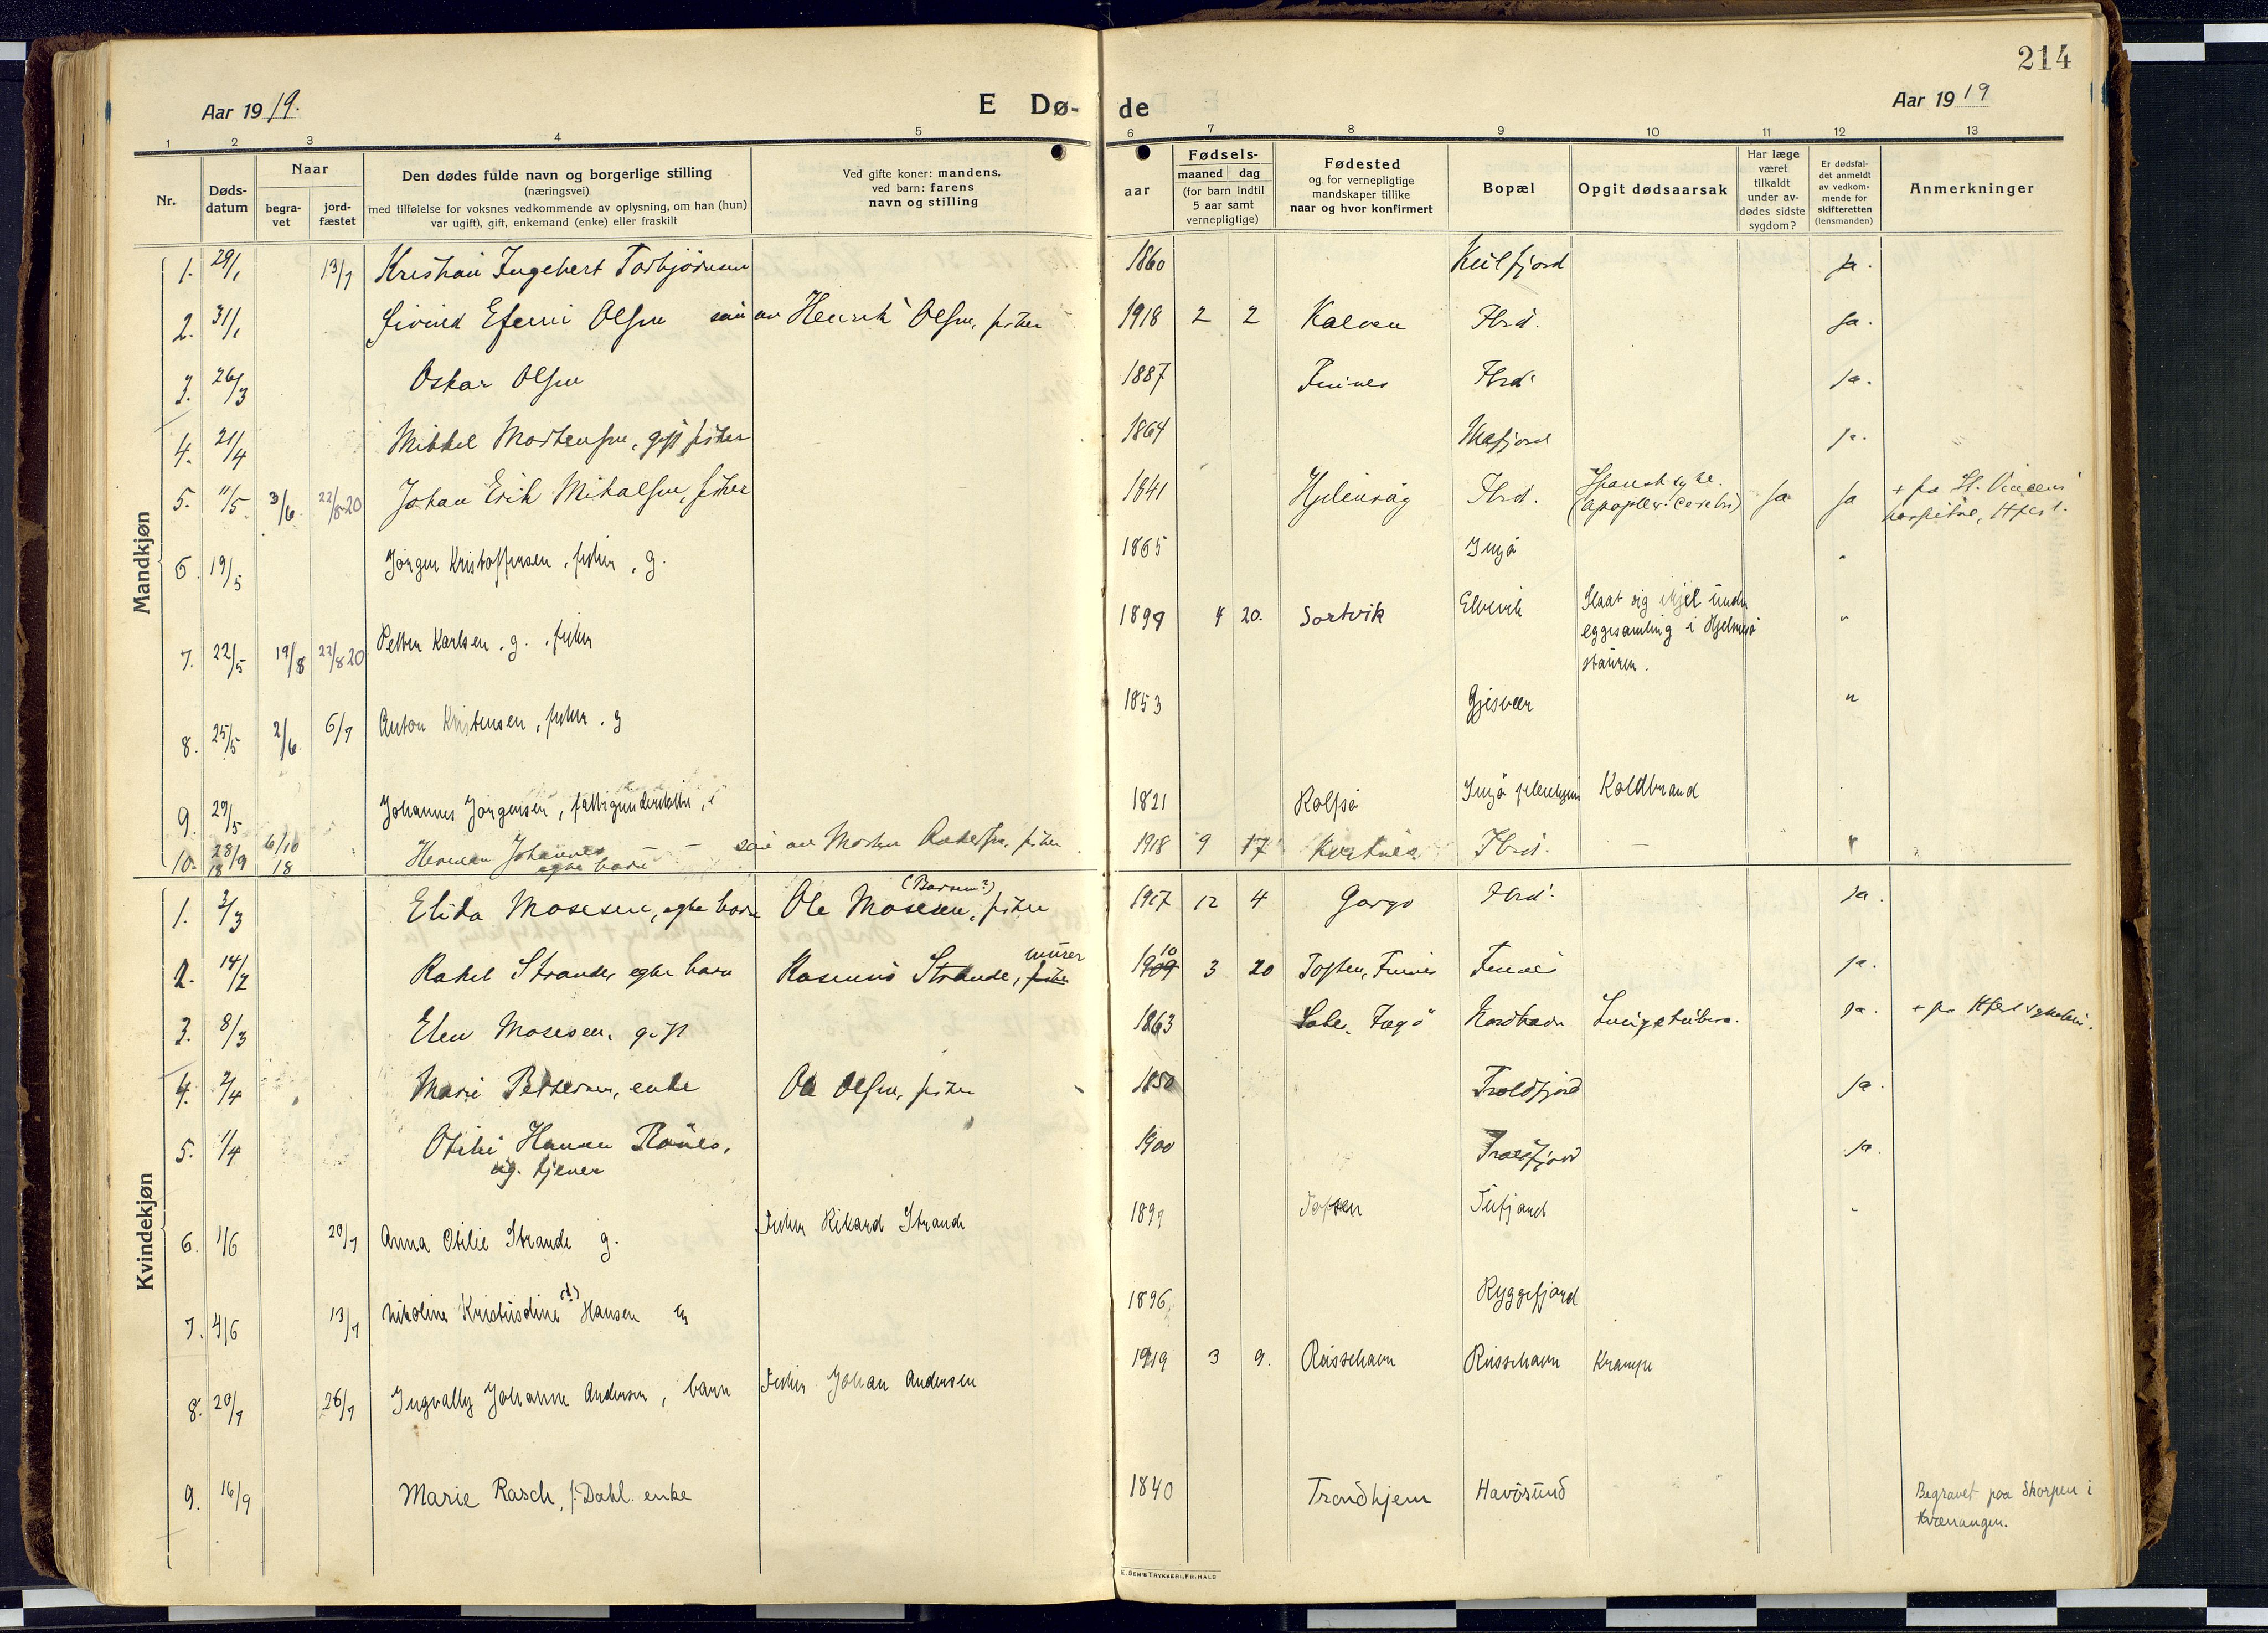 214
Aar 1919.
E Dø-
de
Aar 1919
1 2 3 4 5 6 7 8 9 10 11 12 13
Nr.
Døds-
datum
Naar
begra-
vet
jord-
fæstet
Den dødes fulde navn og borgerlige stilling
(næringsvei)
med tilføielse for voksnes vedkommende av oplysning, om han (hun)
var ugift), gift, enkemand (enke) eller fraskilt
Ved gifte koner: mandens,
ved barn: farens
navn og stilling
aar
Fødsels-
maaned dag
(for barn indtil
5 aar samt
vernepligtige)
Fødested
og for vernepligtige
mandskaper tillike
naar og hvor konfirmert
Bopæl
Opgit dødsaarsak
Har læge
været
tilkaldt
under av-
dødes sidste
sygdom?
Er dødsfal-
det anmeldt
av vedkom-
mende for
skifteretten
(lensmanden)
Anmerkninger
Mandkjøn
1. 29/1 13/7 Kristian Ingebert Torbjørnsen 1860 ja.
2. 31/1 Eivind Efemi Olsen søn av Henrik Olsen, fisker 1918 2 2 Kalven Ibid. ja.
3. 26/3 Oskar Olsen 1887 Finnes Ibid. ja.
4. 21/4 Mikkel Mortensen, gift fisker 1864 ja.
5. 11/5 3/6 22/8-20 Johan Erik Mikalsen, fisker 1841 Ibid. (apoplex. cerebri) ja ja + på St. Vincens
hospital, Hfest.
6. 19/5 Jørgen Kristoffersen, fisker, g. 1865 Ingø "
7. 22/5 19/8 22/8 20 Petter Karlsen, g. fisker 4 20. Sortvik Slaat sig ihjel under
eggesamling i
stauren. "
8. 25/5 2/6 6/7 Anton Kristensen, fisker, g 1853 Gjesvær "
9. 29/5 Johannes Jørgensen, 1821 Rolfsø Ingø pleiehjem Koldbrand
10. 28/9 18 6/10 18 Herman Johannes
egte barn søn av Morten fisker 1918 9 17 Ibid. "
Kvindekjøn
1. 2/3 Elida Mosesen, egte barn Ole Mosesen, fisker (Barsen?) 1917 12 4 Gorgo Ibid. ja.
2. 14/2 Rakel Strande, egte barn Rasmus Strande, fisker murer 1909 10 3 20 Toften, Finnes Finnes ja.
3. 8/3 Elen Mosesen, gift 1863 Nordhavn ja. + på Hfest sykehus.
4. 2/4 Marie Pettersen, enke Ole Olsen, fisker 1850 Troldfjord ja.
5. 1/4 Otilie Hansen
ug. tjener 1900 Troldfjord ja.
6. 1/6 20/7 Anna Otilie Strande g. Fisker Rikard Strande Toften Tufjord "
7. 4/6 13/7 Nikoline Kristiisdine (!) Hansen 1896 Ryggefjord
8. 20/7 26/7 Ingvally Johanne Andersen, barn Fisker Johan Andersen 1919 3 9. Russehavn Russehavn Krampe
9. 16/9 Marie Rasch, f. Dahl. enke 1840 Trondhjem Havøsund Begravet paa Skorpen i
Kvænangen.
E. SEM'S TRYKKERI, FR.HALD